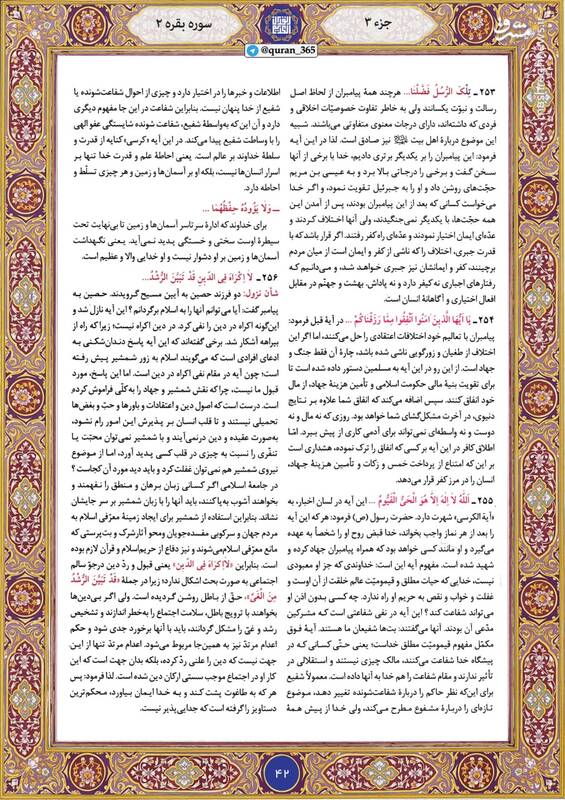 جزء ۳
سوره بقره ۲
@quran_365
مشرق
۲۵۳ ـ تِلْکَ الرُّسُلُ فَضَّلْنَا... هرچند همهٔ پیامبران از لحاظ اصل
رسالت و نبوّت یکسانند ولی به خاطر تفاوت خصوصیّات اخلاقی و
فردی که داشته‌اند، دارای درجات معنوی متفاوتی می‌باشند. شبیه
این موضوع دربارهٔ اهل بیت ﷺ نیز صادق است. لذا در این آیه
فرمود: این پیامبران را بر یکدیگر برتری دادیم، خدا با برخی از آنها
سخن گفت و برخی را درجاتی بالا برد و به عیسی بن مریم
حجّت‌های روشن داد و او را به جبرئیل تقویت نمود، و اگر خدا
می‌خواست کسانی که بعد از این پیامبران بودند، پس از آمدن این
همه حجّت‌ها، با یکدیگر نمی‌جنگیدند، ولی آنها اختلاف کردند و
عدّه‌ای ایمان اختیار نمودند و عدّه‌ای راه کفر رفتند. اگر قرار باشد که با
قدرت جبری، اختلاف را که ناشی از کفر و ایمان است از میان مردم
برچینند، کفر و ایمانشان نیز جبری خواهد شد، و می‌دانیم که
رفتارهای اجباری نه کیفر دارد و نه پاداش، بهشت و جهنّم در مقابل
افعال اختیاری و آگاهانهٔ انسان است.
۲۵۴ ـ یَا اَیُّهَا الَّذِینَ امَنُوا اَنْفِقُوا مِمَّا رَزَقْنَاکُمْ ... در آیهٔ قبل فرمود:
پیامبران با تعالیم خود اختلافات اعتقادی را حل می‌کنند، اما اگر این
اختلاف از طغیان و زورگویی ناشی شده باشد، چارهٔ آن فقط جنگ و
جهاد است. از این رو در این آیه به مسلمین دستور داده شده است تا
برای تقویت بنیهٔ مالی حکومت اسلامی و تأمین هزینهٔ جهاد، از مال
خود انفاق کنند. سپس اضافه می‌کند که انفاق شما علاوه بر نتایج
دنیوی، در آخرت مشکل‌گشای شما خواهد بود. روزی که نه مال و نه
دوست و نه واسطه‌ای نمی‌تواند برای آدمی کاری از پیش ببرد. امّا
اطلاق کافر در این آیه بر کسی که انفاق را ترک نموده، هشداری است
بر این که امتناع از پرداخت خمس و زکات و تأمین هزینهٔ جهاد،
انسان را در مرز کفر قرار می‌دهد.
۲۵۵ ـ اَللّٰهُ لاَ اِلٰهَ اِلاَّ هُوَ الْحَیُّ الْقَیُّومُ ... این آیه در لسان اخبار، به
«آیة الکرسی» شهرت دارد. حضرت رسول (ص) فرمود: هر که این آیه
را بعد از هر نماز واجب بخواند، خدا قبض روح او را شخصاً به عهده
می‌گیرد و او مانند کسی خواهد بود که همراه پیامبران جهاد کرده و
شهید شده است. مفهوم آیه این است: خداوندی که جز او معبودی
نیست، خدایی که حیات مطلق و قیمومیّت عالم خلقت از آن اوست و
غفلت و خواب و نقص به حریم او راه ندارد. چه کسی بدون اذن او
می‌تواند شفاعت کند؟ این آیه در نفی شفاعتی است که مشرکین
مدّعی آن بودند. آنها می‌گفتند: بت‌ها شفیعان ما هستند. آیهٔ فوق
مکمّل مفهوم قیمومیّت مطلق خداست؛ یعنی حتّی کسانی که در
پیشگاه خدا شفاعت می‌کنند، مالک چیزی نیستند و استقلالی در
تأثیر ندارند و مقام شفاعت را هم خدا به آنها داده است. معمولاً شفیع
برای این‌که نظر حاکم را دربارهٔ شفاعت‌شونده تغییر دهد، موضوع
تازه‌ای را دربارهٔ مشفوع مطرح می‌کند، ولی خدا از پیش همهٔ
اطلاعات و خبرها را در اختیار دارد و چیزی از احوال شفاعت‌شونده یا
شفیع از خدا پنهان نیست. بنابراین شفاعت در این جا مفهوم دیگری
دارد و آن این که به‌واسطهٔ شفیع، شفاعت شونده شایستگی عفو الهی
را با وساطت شفیع پیدا می‌کند. در این آیه «کرسی» کنایه از قدرت و
سلطهٔ خداوند بر عالم است. یعنی احاطهٔ علم و قدرت خدا تنها بر
اسرار انسان‌ها نیست، بلکه او بر آسمان‌ها و زمین و هر چیزی تسلّط و
احاطه دارد.
ـ وَلاَ یَؤُودُهُ حِفْظُهُمَا ...
برای خداوند که ادارهٔ سرتاسر آسمان‌ها و زمین تا بی‌نهایت تحت
سیطرهٔ اوست سختی و خستگی پدید نمی‌آید. یعنی نگهداشت
آسمان‌ها و زمین بر او دشوار نیست و او خدایی والا و عظیم است.
۲۵۶ ـ لاَ اِکْرَاهَ فِی الدِّینِ قَدْ تَبَیَّنَ الرُّشْدُ...
شأن نزول: دو فرزند حصین به آیین مسیح گرویدند. حصین به
پیامبر گفت: آیا می‌توانم آنها را به اسلام برگردانم؟ این آیه نازل شد و
این‌گونه اکراه در دین را نفی کرد. در دین اکراه نیست؛ زیرا که راه از
بیراهه آشکار شد. برخی گفته‌اند که این آیه پاسخ دندان‌شکنی به
ادعای افرادی است که می‌گویند اسلام به زور شمشیر پیش رفته
است؛ چون آیه در مقام نفی اکراه در دین است. اما این پاسخ، مورد
قبول ما نیست، چرا که نقش شمشیر و جهاد را به‌کلّی فراموش کرده‌ایم.
درست است که اصول دین و اعتقادات و باورها و حبّ و بغض‌ها
تحمیلی نیستند و تا قلب انسان بر پذیرش این امور رام نشود،
به‌صورت عقیده و دین درنمی‌آیند و با شمشیر نمی‌توان محبّت یا
تنفّری را نسبت به چیزی در قلب کسی پدید آورد، اما از موضوع
نیروی شمشیر هم نمی‌توان غفلت کرد و باید دید مورد آن کجاست؟
در جامعهٔ اسلامی اگر کسانی زبان برهان و منطق را نفهمند و
بخواهند آشوب به‌پا کنند، باید آنها را با زبان شمشیر بر سر جایشان
نشاند. بنابراین استفاده از شمشیر برای ایجاد زمینهٔ معرّفی اسلام به
مردم جهان و سرکوبی مفسده‌جویان ومحو آثار شرک و بت‌پرستی که
مانع معرّفی اسلام می‌شوند و نیز دفاع از حریم اسلام و قرآن لازم بوده
است. بنابراین «لاَ اِکْرَاهَ فِی الدِّینِ» یعنی قبول و ردّ دین درجوّ سالم
اجتماعی به صورت بحث اشکال ندارد زیرا در جملهٔ «قَدْ تَبَیَّنَ الرُّشْدُ
مِنَ الْغَیِّ»، حق از باطل روشن گردیده است. ولی اگر بی‌دین‌ها
بخواهند با ترویج باطل، سلامت اجتماع را به‌خطر اندازند و تشخیص
رشد و غیّ را مشکل گردانند، باید با آنها برخورد جدی شود و حکم
اعدام مرتدّ نیز به همین‌جا مربوط می‌شود. اعدام مرتد تنها از این
جهت نیست که دین را علنی ردّ کرده، بلکه بدان جهت است که این
کار او در اجتماع موجب سستی ارکان دین شده است. لذا فرمود: پس
هر که به طاغوت پشت کند و به خدا ایمان بیاورد، محکم‌ترین
دستاویز را گرفته است که جدایی‌پذیر نیست.
۴۲